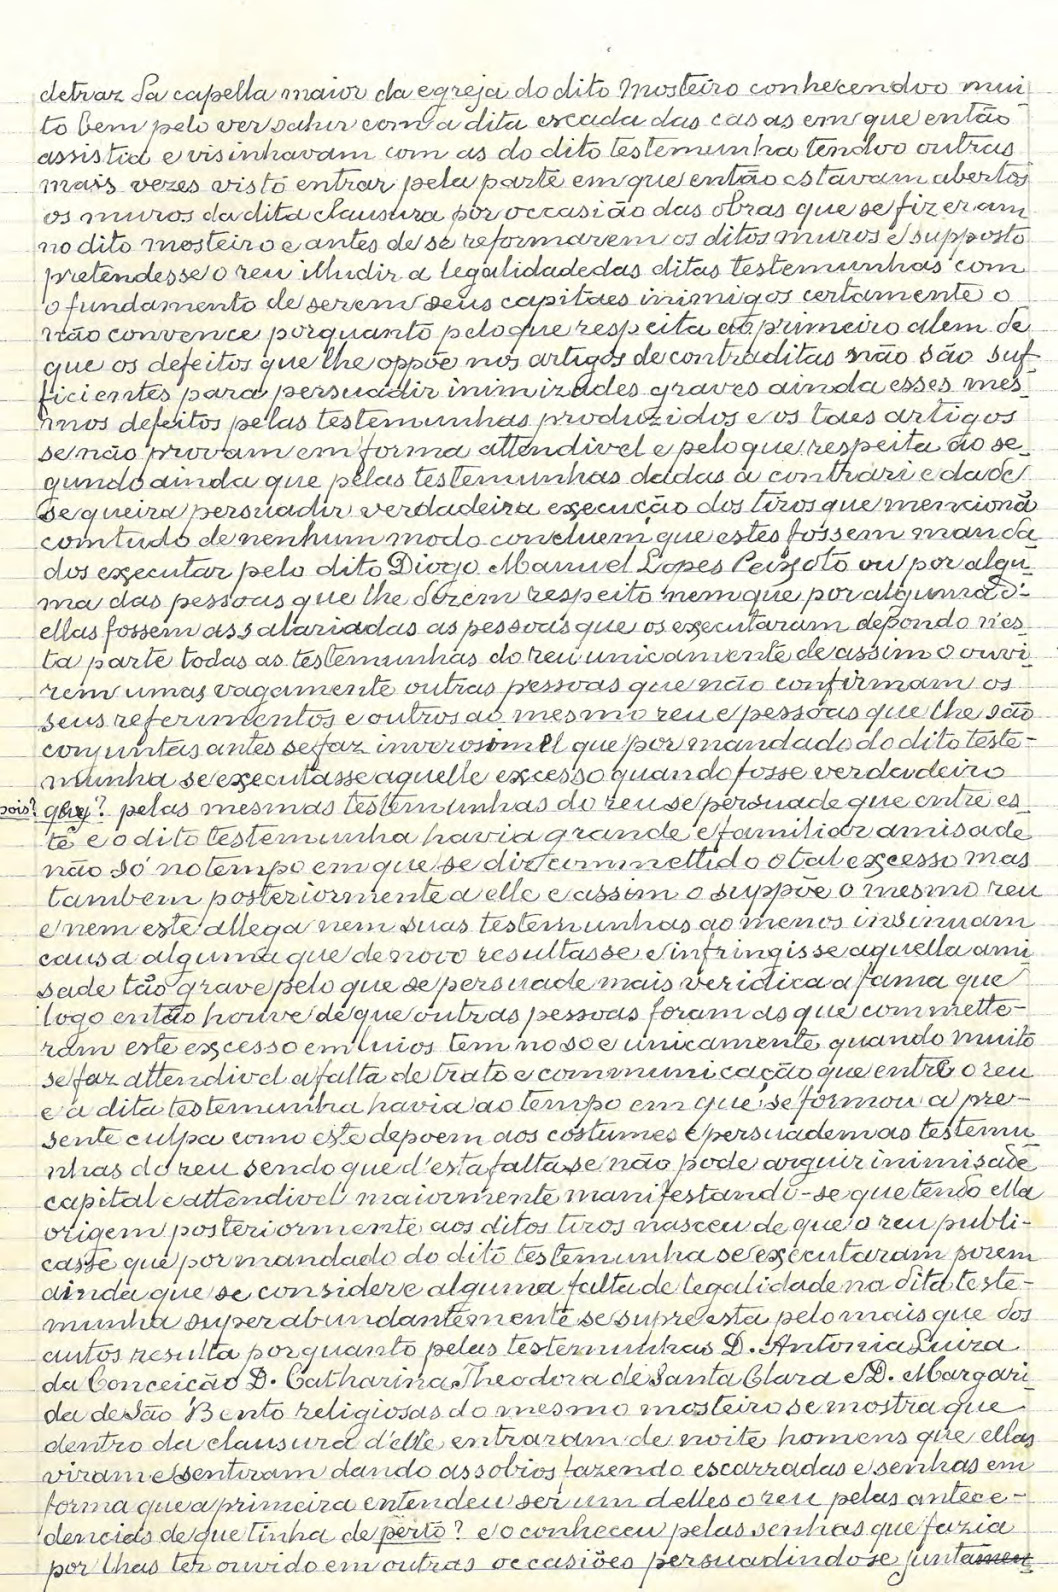 detraz da capella maior da egreja do dito Mosteiro conhecendoo mui-
to bem pelo ver sahir com a dita escada das casas em que então
assistia e visinhavam com as do dito testemunha tendoo outras
mais vezes visto entrar pela parte em que então estavam abertos
os muros da dita clausura por occasião das obras que se fizeram
no dito mosteiro e antes de se reformarem os ditos muros e supposto
pretendesse o reu illudir a legalidade das ditas testemunhas com
o fundamento de serem seus capitaes inimigos certamente o
não convence porquanto pelo que respeita ao primeiro alem de
que os defeitos que lhe oppõe nos artigos de contraditas não são suf-
ficientes para persuadir inimizades graves ainda esses mes-
mos defeitos pelas testemunhas produzidos e os taes artigos
se não provam em forma attendivel e pelo que respeita ao se-
gundo ainda que pelas testemunhas dadas á contrariedade
se queira persuadir verdadeira execução dos tiros que menciona
comtudo de nenhum modo concluem que estes fossem manda-
dos executar pelo dito Diogo Manuel Lopes Peixoto ou por algu-
ma das pessoas que lhe dizem respeito nem que por alguma d'-
ellas fossem assalariadas as pessoas que os executaram depondo n'es-
ta parte todas as testemunhas do reu unicamente de assim o ouvi-
rem umas vagamente outras pessoas que não confirmam os
seus referimentos e outros ao mesmo reu e pessoas que lhe são
conjuntas antes se faz inverosimel que por mandado do dito teste-
munha se executasse aquelle excesso quando fosse verdadeiro
pois? pelas mesmas testemunhas do reu se persuade que entre es-
te e o dito testemunha havia grande e familiar amisade
não só no tempo em que se diz commettido o tal excesso mas
tambem posteriormente a elle e assim o suppõe o mesmo reu
e nem este allega nem suas testemunhas ao menos insinuam
causa alguma que de novo resultasse e infringisse aquella ami-
sade tão grave pelo que se persuade mais veridica a fama que
logo então houve de que outras pessoas foram as que commette-
ram este excesso em e unicamente quando muito
se faz attendivel a falta de trato e communicação que entre o reu
e a dita testemunha havia ao tempo em que se formou a pre-
sente culpa como este depoem aos costumes e persuadem as testemu-
nhas do reu sendo que d'esta falta se não pode arguir inimisade
capital e attendivel maiormente manifestando-se que tendo ella
origem posteriormente aos ditos tiros nasceu de que o reu publi-
casse que por mandado do dito testemunha se executaram porem
ainda que se considere alguma falta de legalidade na dita teste-
munha superabundantemente se supre esta pelo mais que dos
autos resulta porquanto pelas testemunhas D. Antonia Luiza
da Conceição D. Catharina Theodora de Santa Clara e D. Margari-
da de São Bento religiosas do mesmo mosteiro se mostra que
dentro da clausura d'elle entraram de noite homens que ellas
viram e sentiram dando assobios fazendo escarradas e senhas em
forma que a primeira entendeu ser um delles o reu pelas antece-
dencias de que tinha de perto? e o conheceu pelas senhas que fazia
por lhas ter ouvido em outras occasiões persuadindose junta